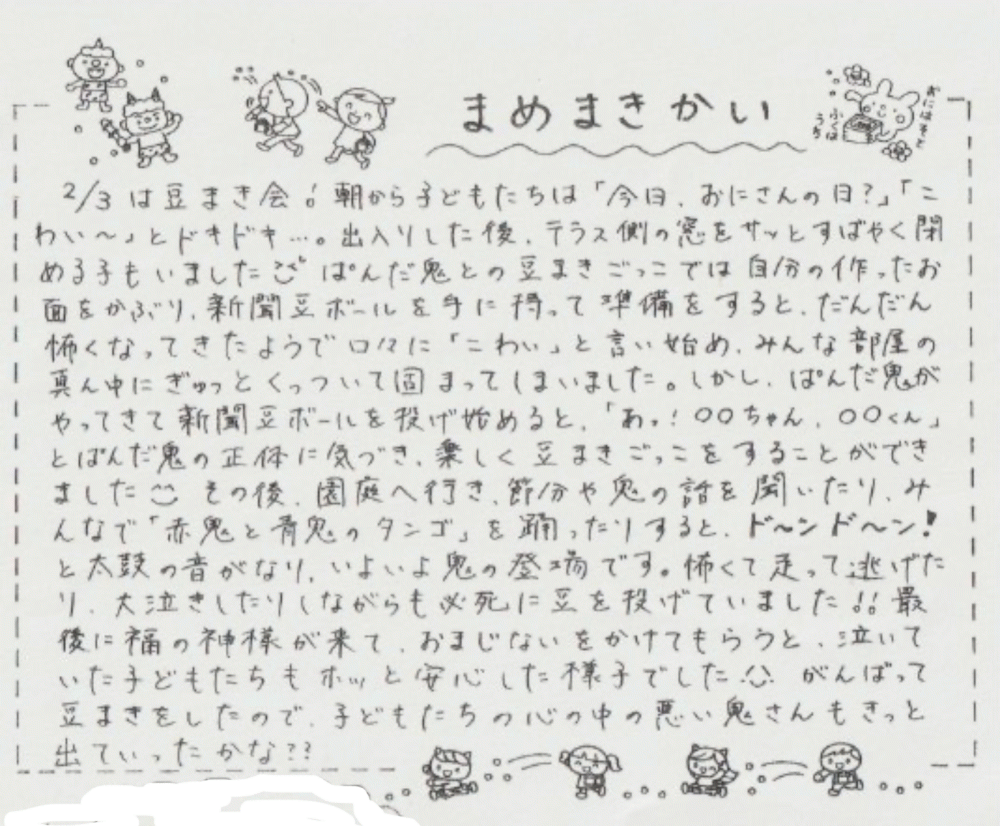 まめまきかい
おにはそと
ふくは
うち
2/3は豆まき会!朝から子どもたちは「今日、おにさんの日?」「こ
わい~」とドキドキ…。出入りした後、テラス側の窓をサッとすばやく閉
める子もいました ぱんだ鬼との豆まきごっこでは自分の作ったお
面をかぶり、新聞豆ボールを手に持って準備をすると、だんだん
怖くなってきたようで口々に「こわい」と言い始め、みんな部屋の
真ん中にぎゅっとくっついて固まってしまいました。しかし、ぱんだ鬼が
やってきて新聞豆ボールを投げ始めると、「あっ!〇〇ちゃん、〇〇くん」
とぱんだ鬼の正体に気づき、楽しく豆まきごっこをすることができ
ました その後、園庭へ行き、節分や鬼の話を聞いたり、み
んなで「赤鬼と青鬼のタンゴ」を踊ったりすると、ド~ンド~ン!
と太鼓の音がなり、いよいよ鬼の登場です。怖くて走って逃げた
り、大泣きしたりしながらも必死に豆を投げていました!!最
後に福の神様が来て、おまじないをかけてもらうと、泣いて
いた子どもたちもホッと安心した様子でした がんばって
豆まきをしたので、子どもたちの心の中の悪い鬼さんもきっと
出ていったかな??